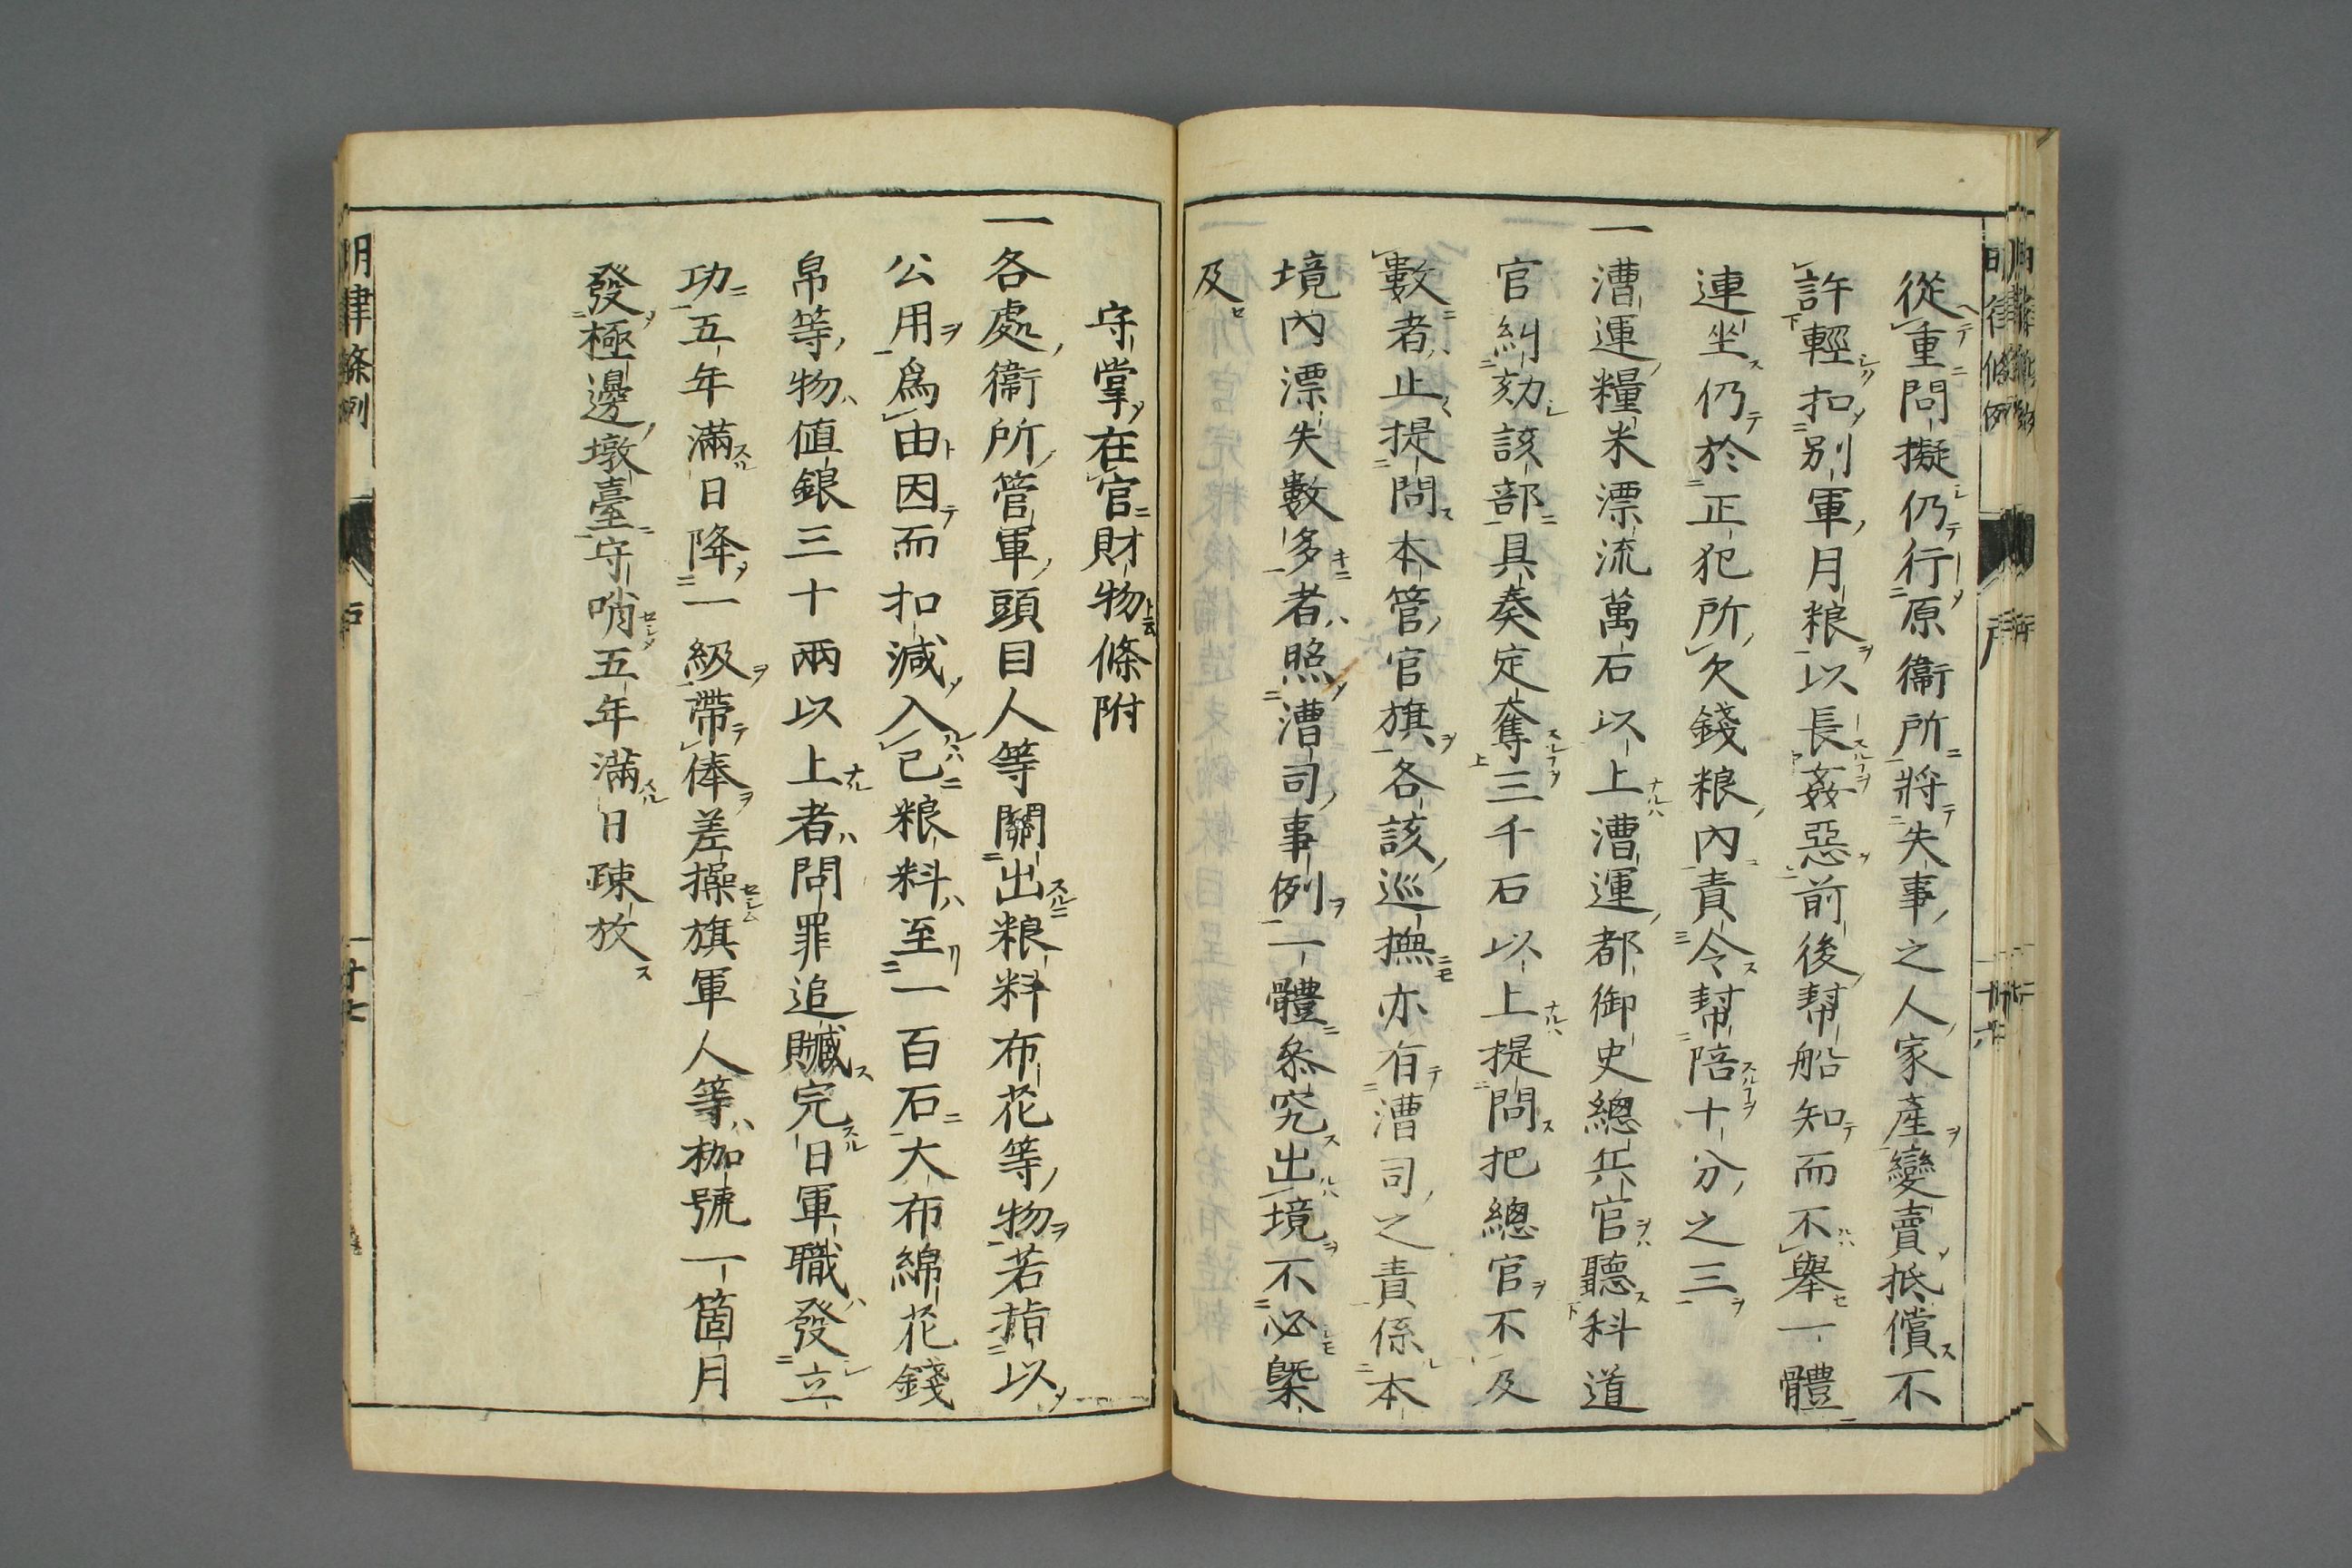 從重問擬仍行原衞所將失事之人家產變賣抵償不
許輕扣別軍月粮以長姦惡前後幫船知而不舉一體
連坐仍於正犯所欠錢粮內責令幫陪十分之三
一漕運糧米漂流萬石以上漕運都御史總兵官聽科道
官糾劾該部具奏定奪三千石以上提問把總官不及
數者止提問本管官旗各該巡撫亦有漕司之責係本
境內漂失數多者照漕司事例一體叅究出境不必槩
及
守掌在官財物條附
一各處衞所管軍頭目人等關出粮料布花等物若指以
公用爲由因而扣減入己粮料至一百石大布綿花錢
帛等物値銀三十兩以上者問罪追贓完日軍職發立
功五年滿日降一級帶俸差操旗軍人等枷號一箇月
發極邊墩臺守哨五年滿日疎放
明律條例
戶
一廿七